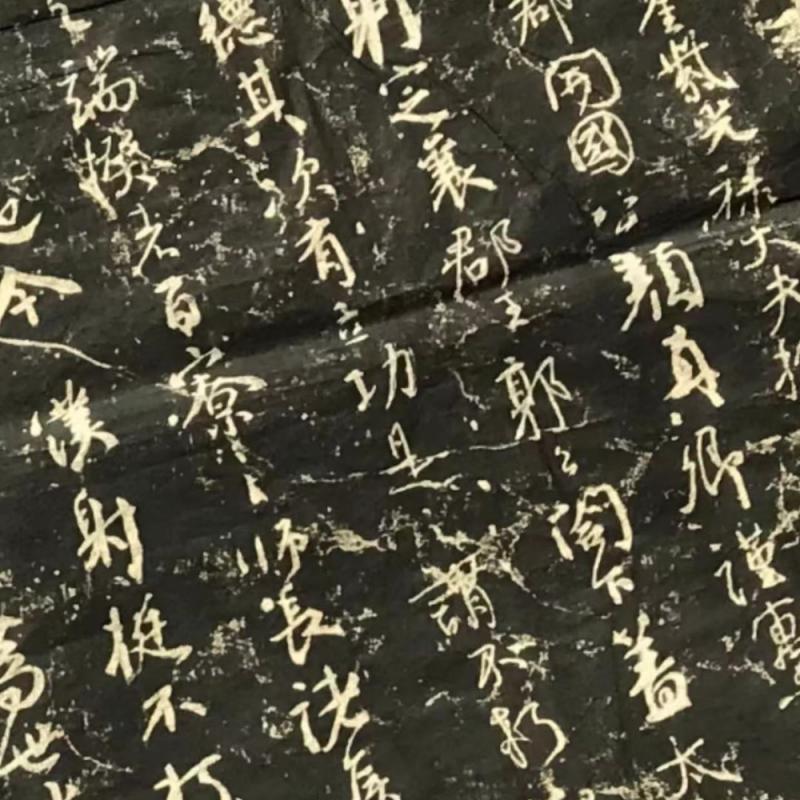 金紫光祿大夫
郡開國公顏真卿謹
射定襄郡王郭公閤下蓋太
德其次有立功是之謂不朽
端揆者百寮之師長諸侯
也今僕射挺不朽
世